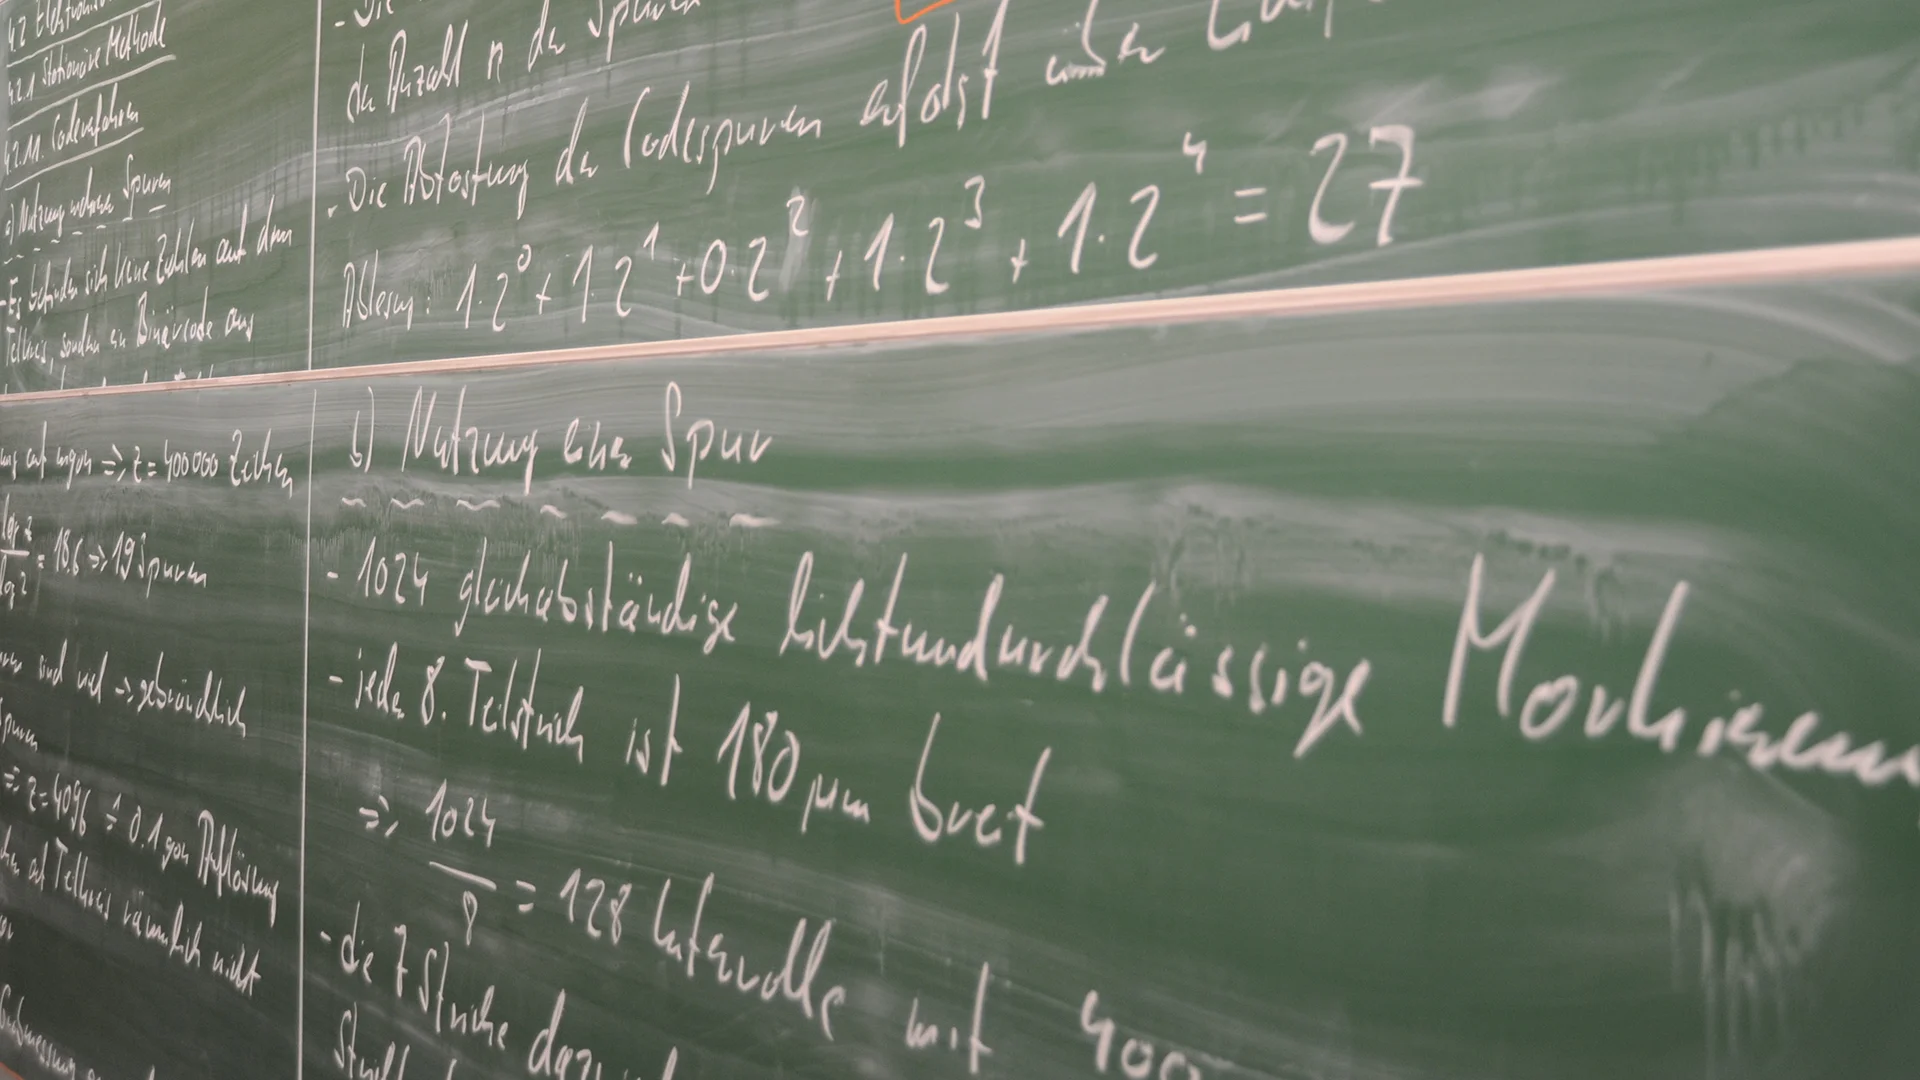 4.2 Elektronische
4.2.1 Stationäre Methode
4.2.1.1. Codeverfahren
a) Nutzung mehrerer Spuren
- Es befinden sich keine Zahlen auf dem
Teilkreis, sondern ein Binärcode aus
- Die
der Anzahl n der Spuren
- Die Abtastung der Codespuren erfolgt über
Ablesung: 1·2⁰ + 1·2¹ + 0·2² + 1·2³ + 1·2⁴ = 27
auf mgon => z = 400000 Zeichen
log z / log 2 = 18.6 => 19 Spuren
sind viel → gebräuchlich
Spuren
=> z = 4096 ≙ 0.1 gon Auflösung
auf Teilkreis räumlich nicht
b) Nutzung einer Spur
- 1024 gleichabständige lichtundurchlässige Markierun
- jeder 8. Teilstrich ist 180 µm breit
=> 1024 / 8 = 128 Intervalle mit 400
- die 7 Striche